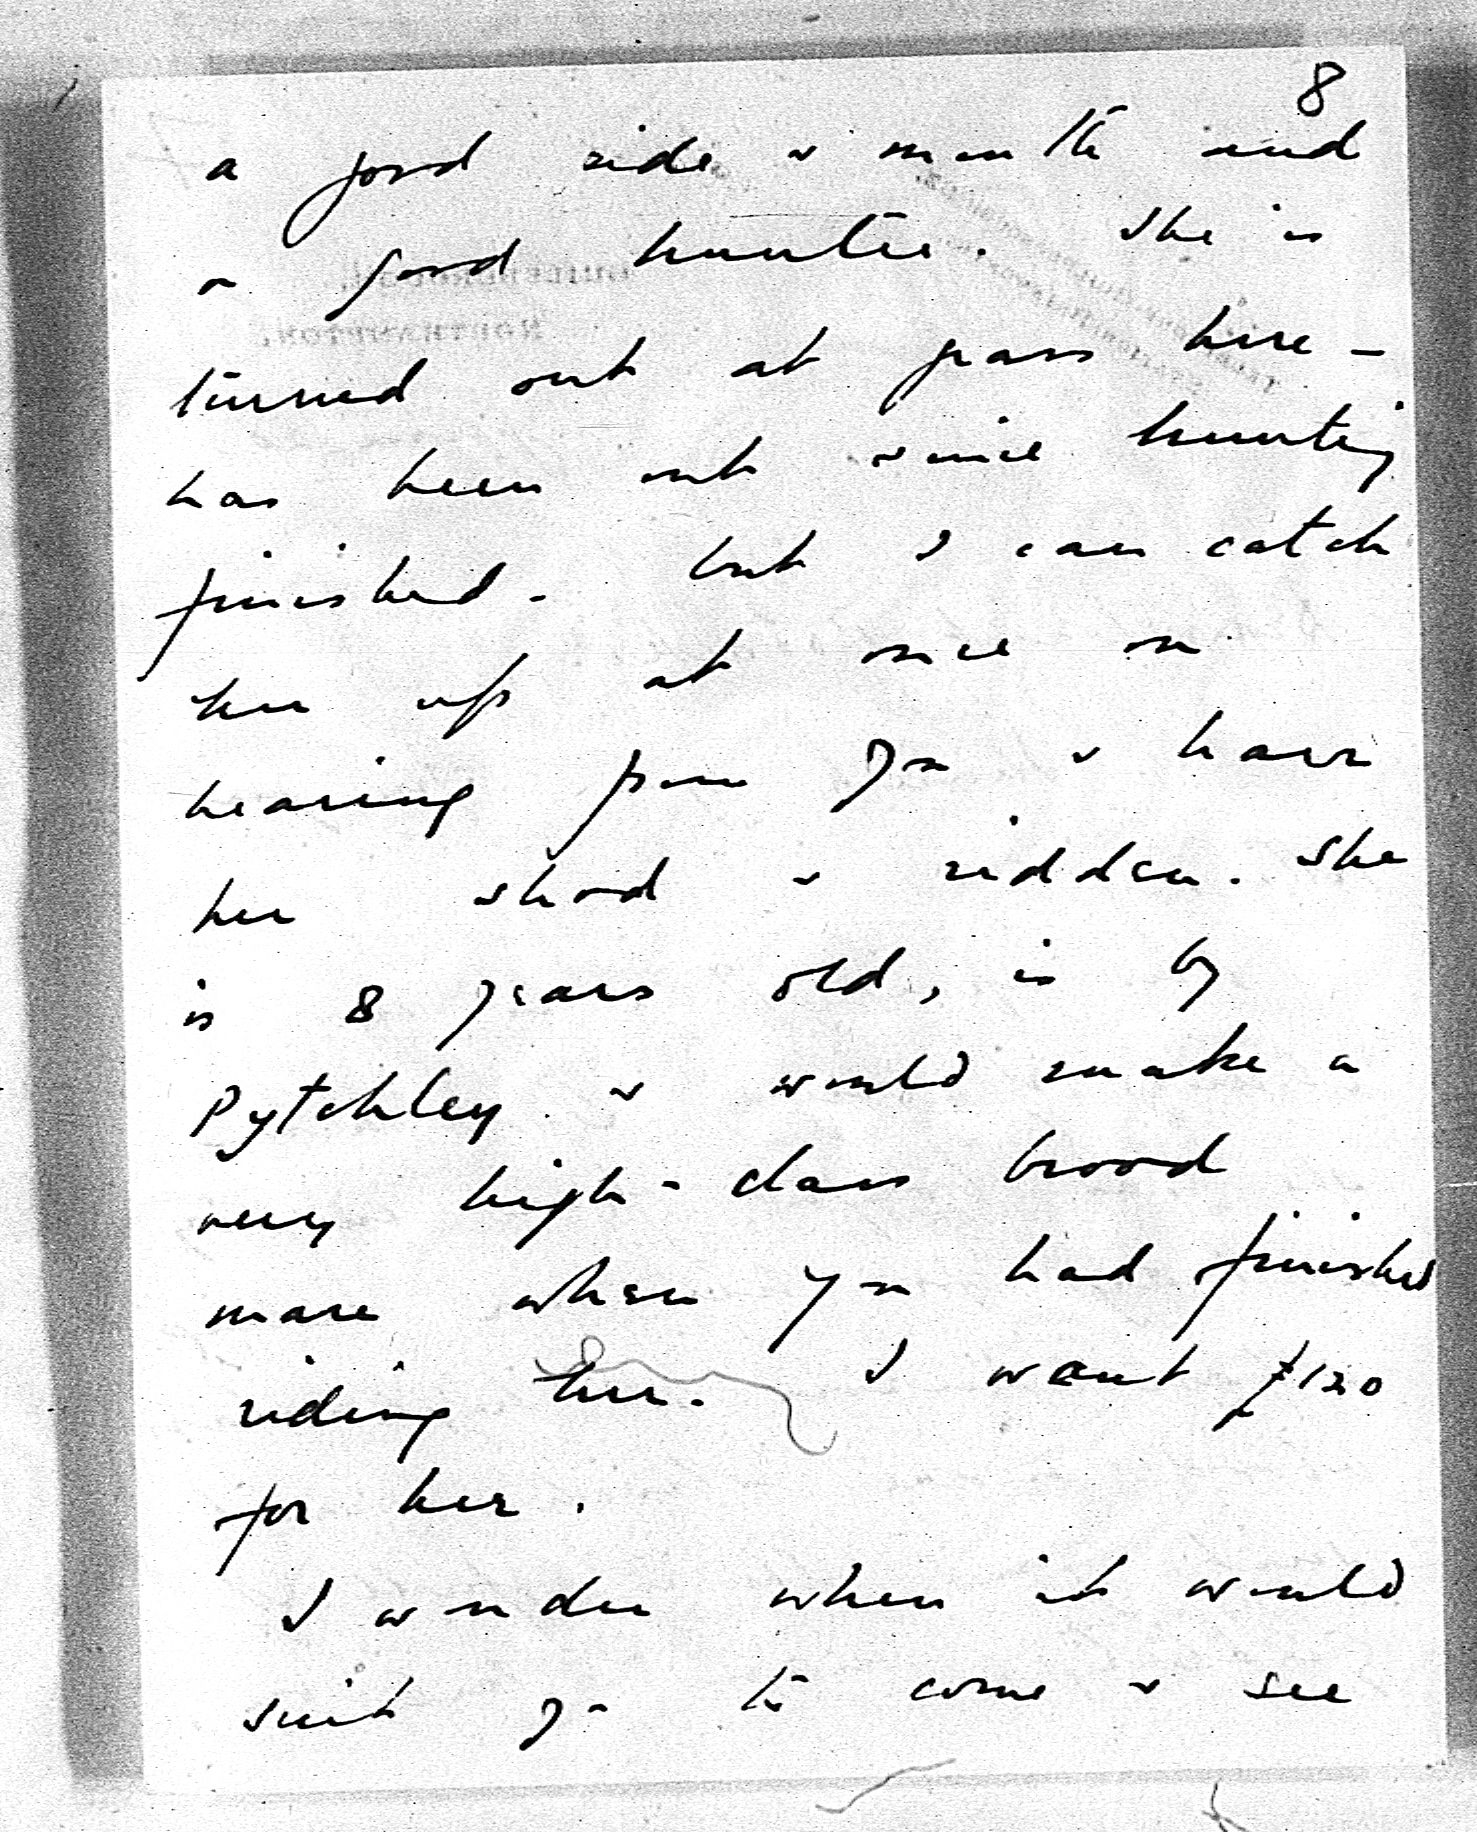 8
a good ride & mouth and
a good hunter. She is
turned out at grass here -
has been out since hunting
finished - but I can catch
her up at once on
hearing from you & have
her shod & ridden. She
is 8 years old, is by
Pytchley & would make a
very high-class brood
mare when you had finished
riding her. I want £120
for her.
I wonder when it would
suit you to come & see